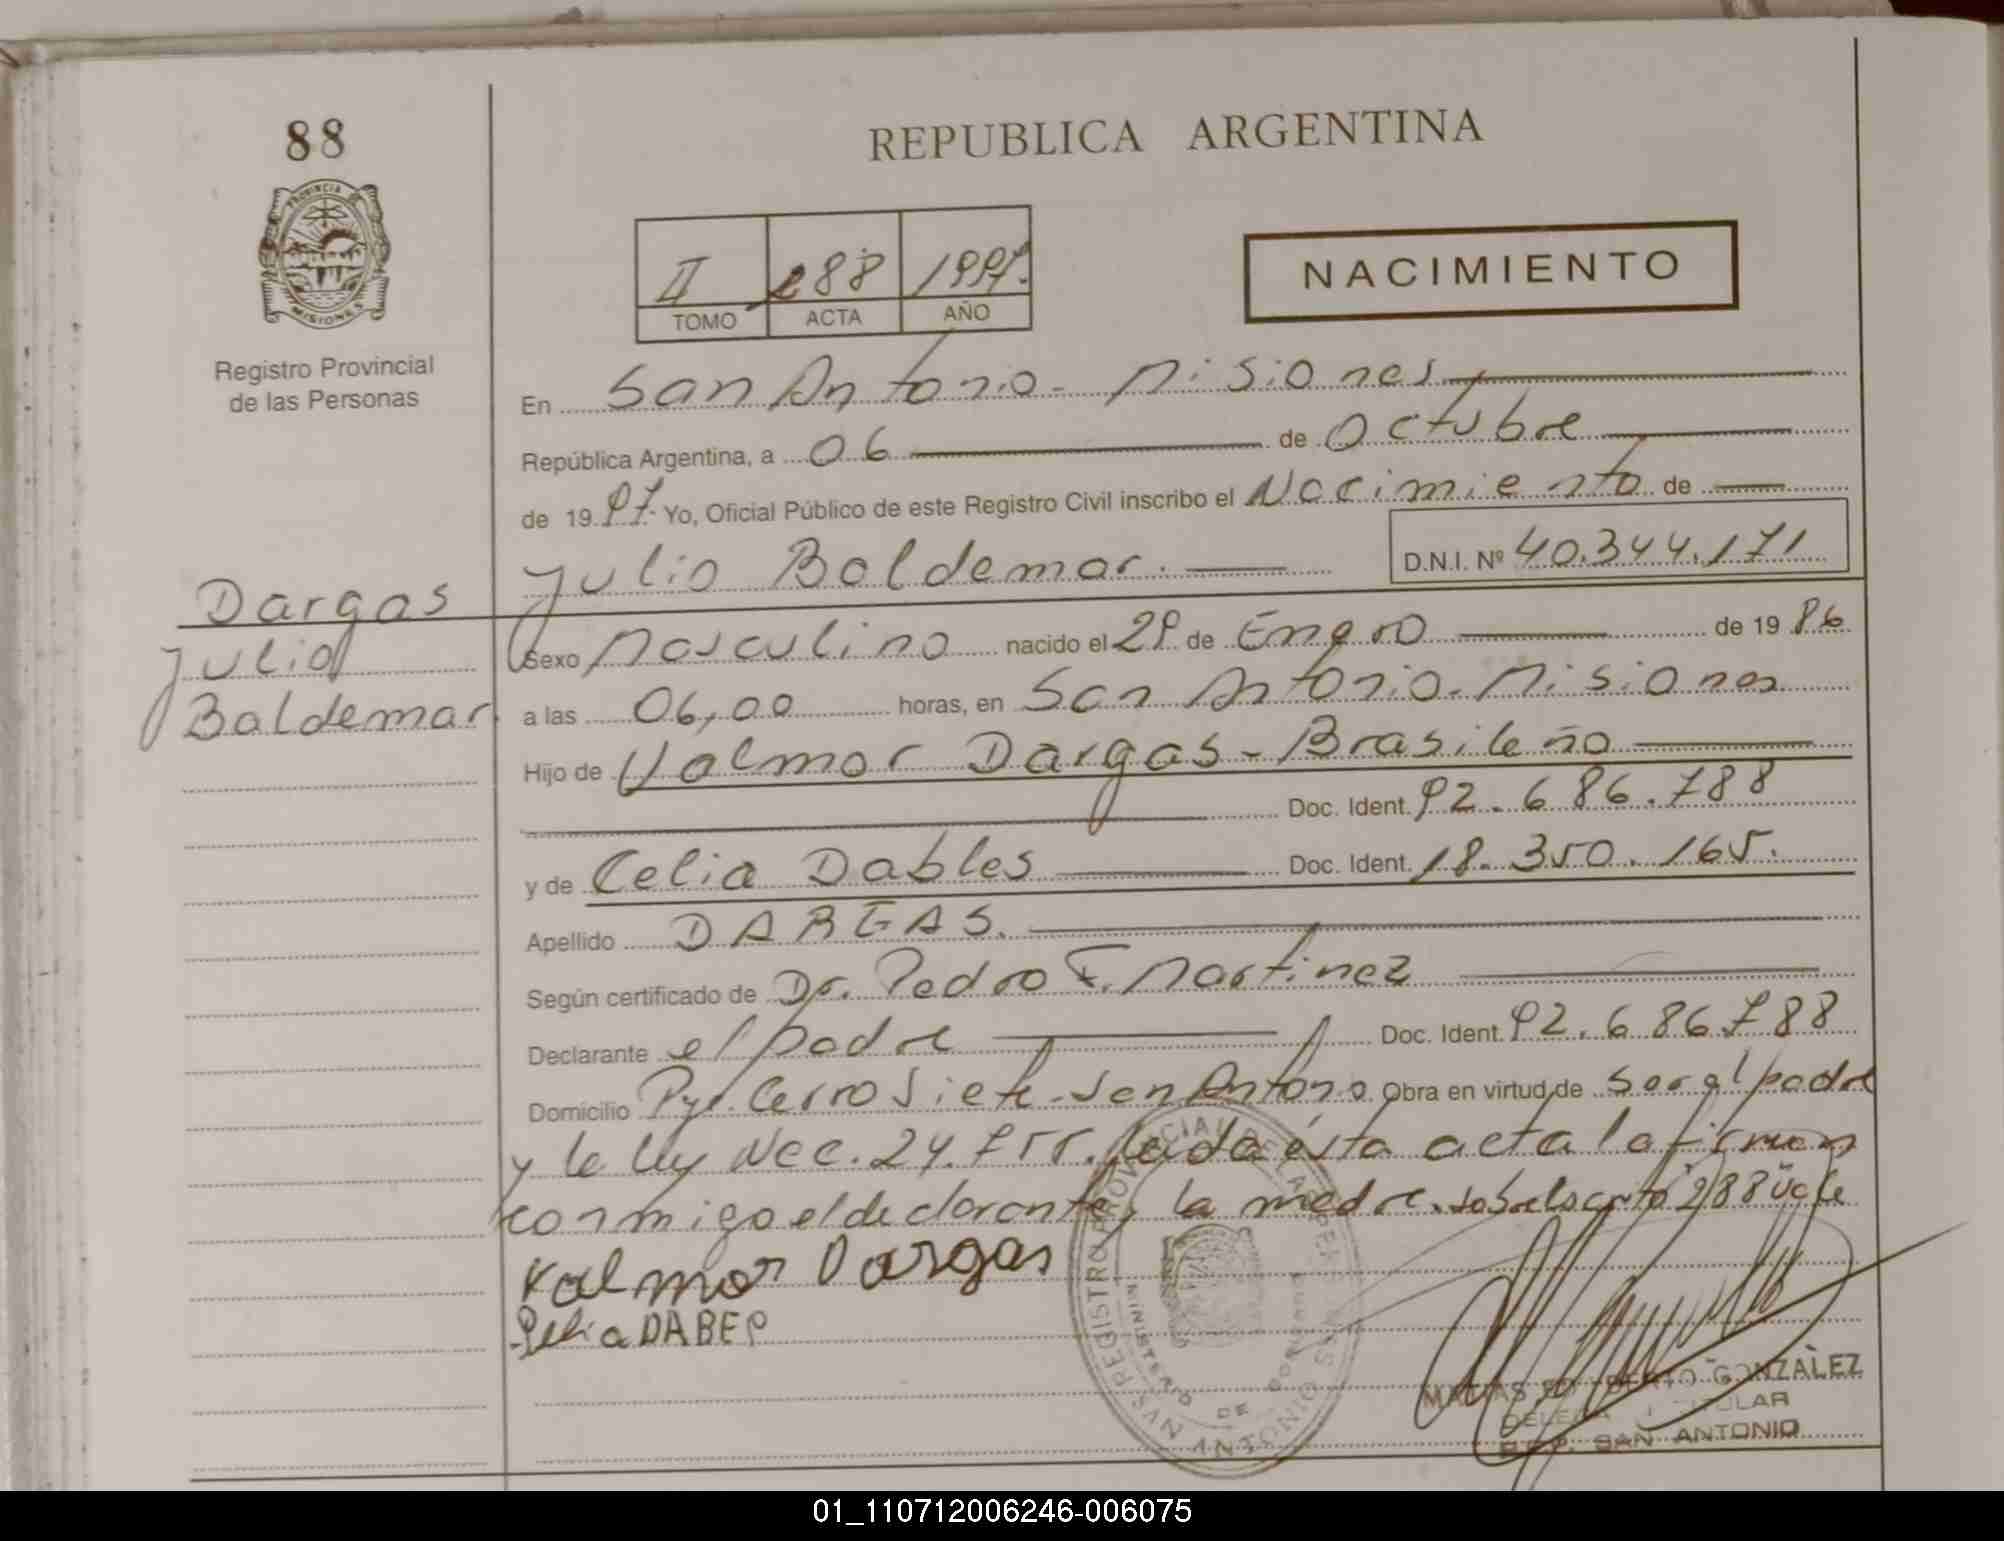 88
PROVINCIA
MISIONES
Registro Provincial
de las Personas
REPUBLICA ARGENTINA
II 288 1997.
TOMO ACTA AÑO
NACIMIENTO
En San Antonio - Misiones
República Argentina, a 06 de Octubre
de 1997. Yo, Oficial Público de este Registro Civil inscribo el Nacimiento de
Julio Baldemar. D.N.I. Nº 40.344.171
Dargas
Julio
Baldemar
Sexo Masculino nacido el 29 de Enero de 1986
a las 06,00 horas, en San Antonio - Misiones
Hijo de Valmor Dargas - Brasileño
Doc. Ident. 92.686.788
y de Celia Dables Doc. Ident. 18.350.165.
Apellido DARGAS.
Según certificado de Dr. Pedro F. Martinez
Declarante el padre Doc. Ident. 92.686.788
Domicilio Cerro Siete - San Antonio Obra en virtud de ser el padre
y la ley Nac. 24.755. leída ésta acta la firman
conmigo el declarante y la madre. sobrelscrito "288" vale
Valmor Dargas
Celia DABEP
REGISTRO PROVINCIAL DE LAS PERSONAS
MINISTERIO DE GOBIERNO
SAN ANTONIO
MATIAS GONZALEZ
TITULAR
R.P.P. SAN ANTONIO
01_110712006246-006075